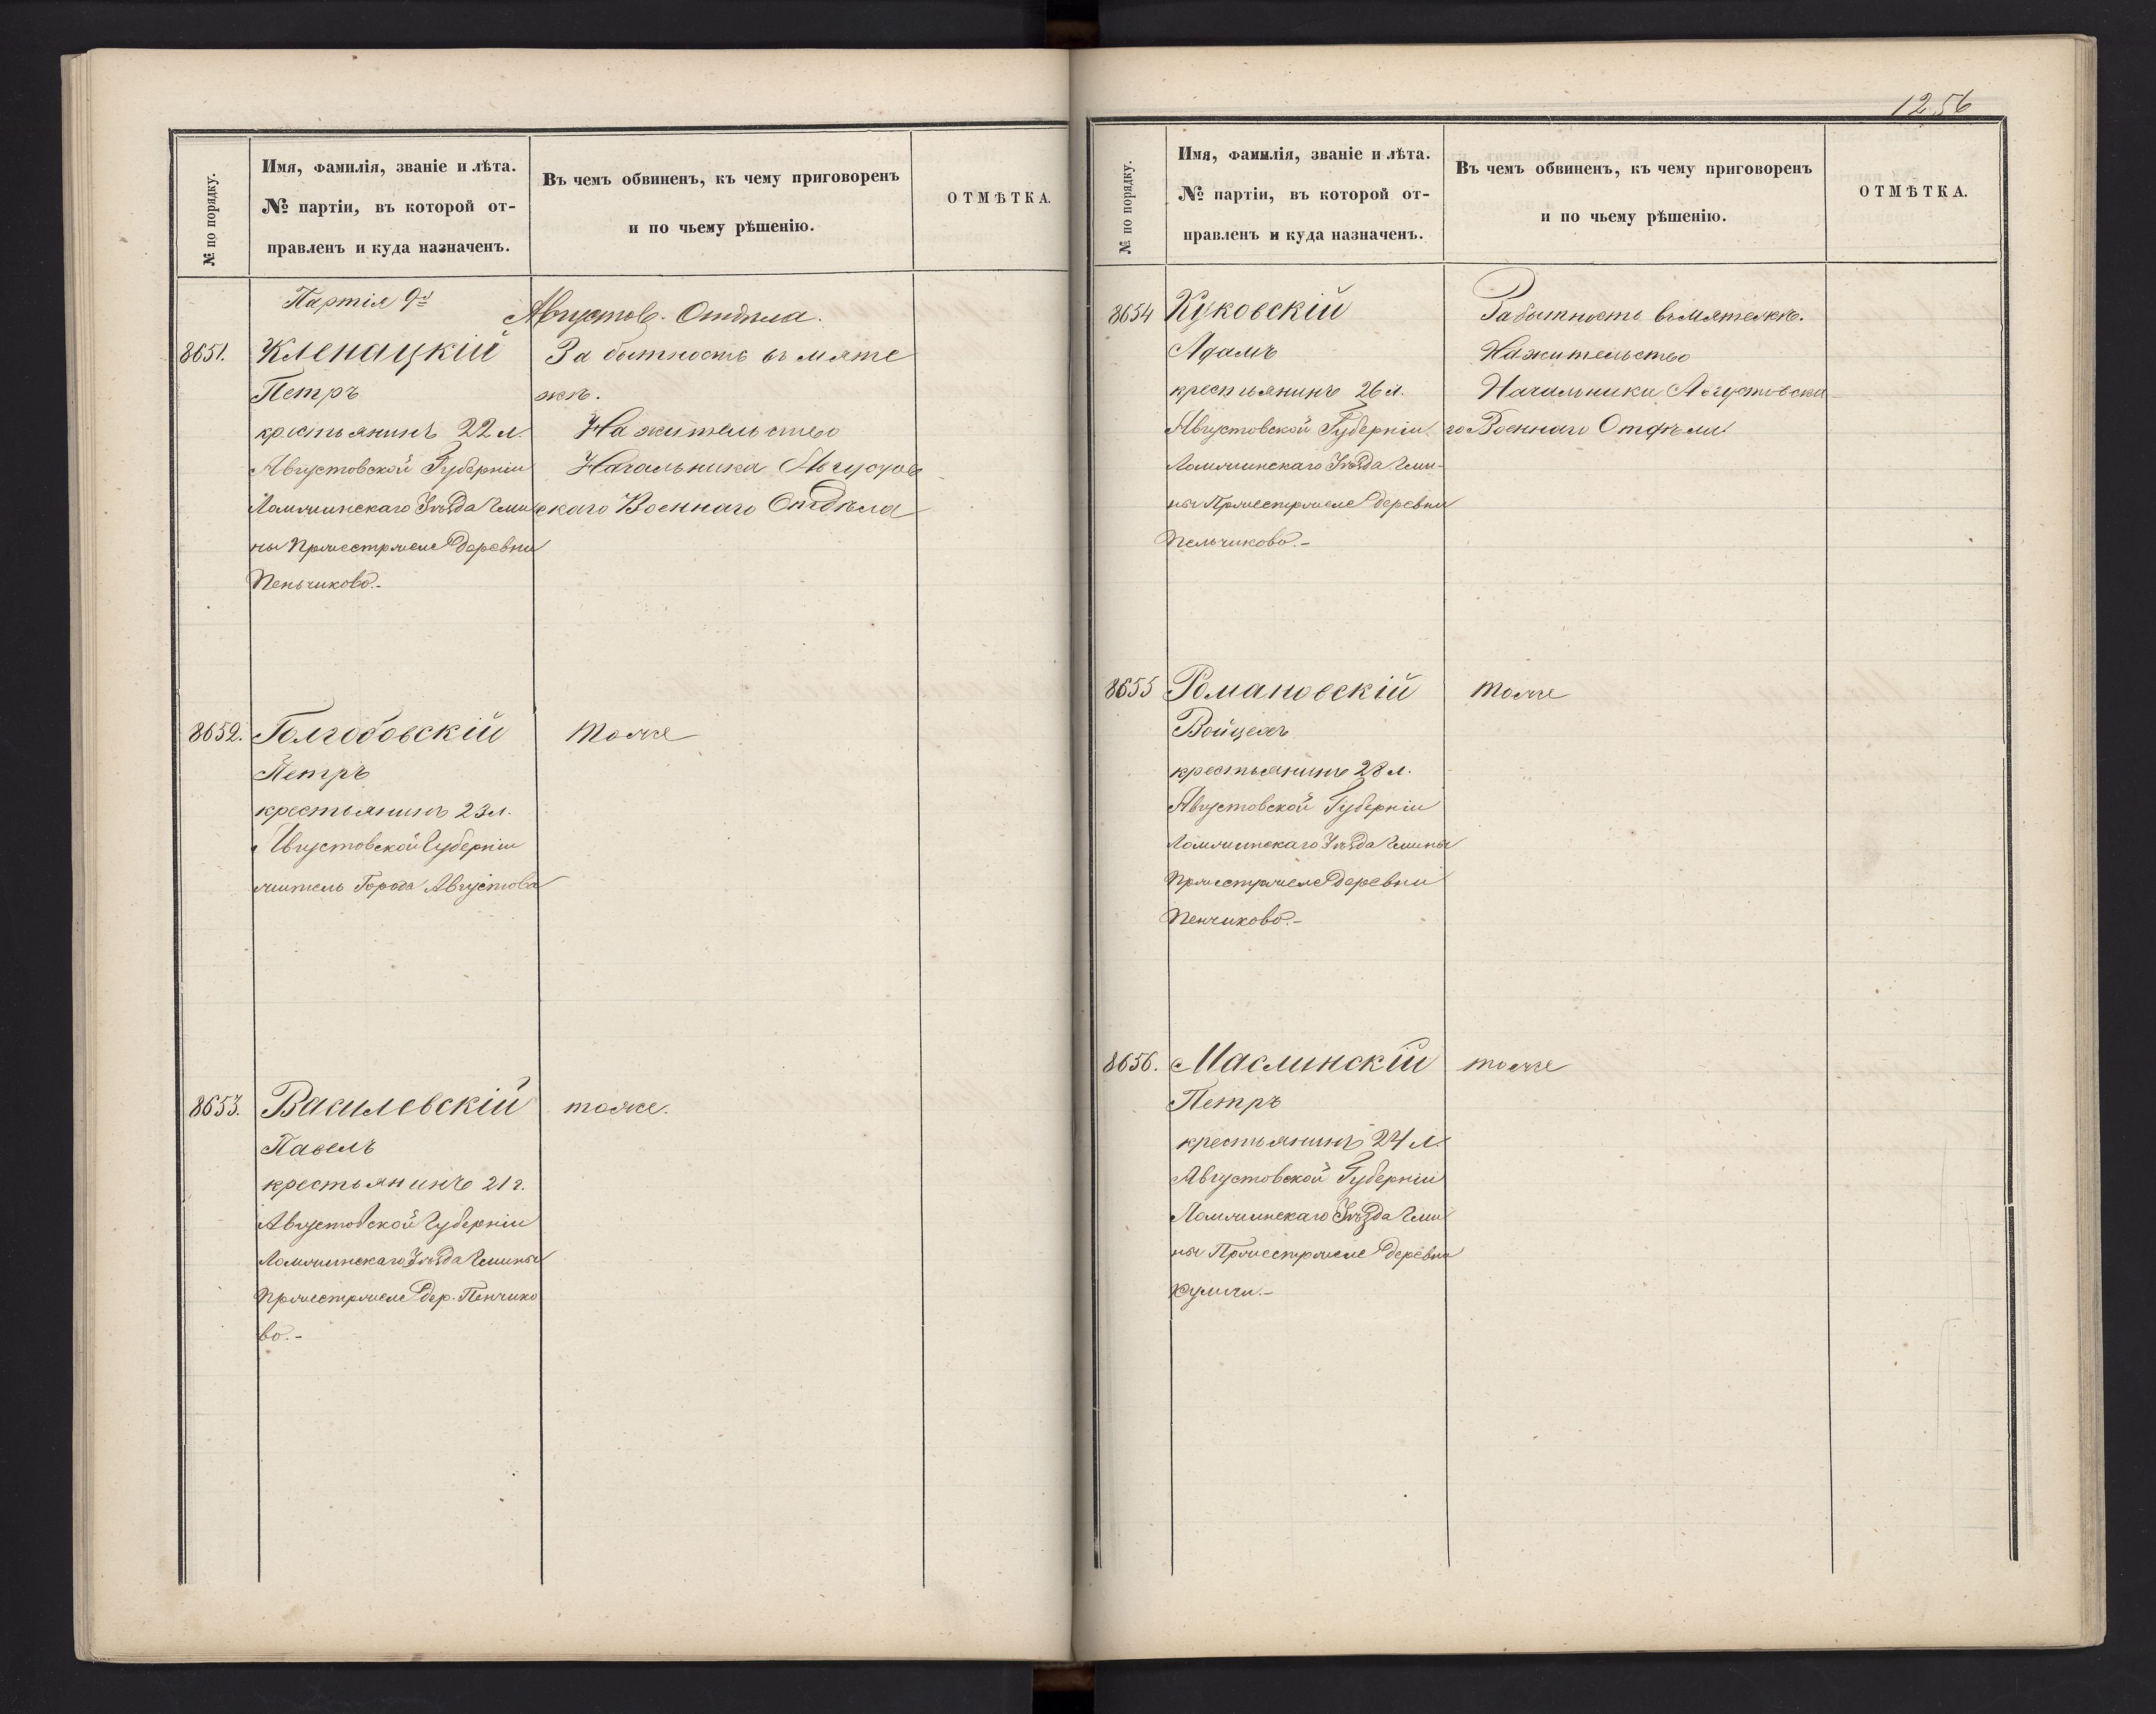 № по порядку.
Имя, фамилія, званіе и лѣта.
№ партіи, въ которой от-
правленъ и куда назначенъ.
Въ чемъ обвиненъ, къ чему приговоренъ
и по чьему рѣшенію.
ОТМѢТКА.
Партія 9я
Августов. Отдѣла.
8651.
Кленацкій
Петръ
крестьянинъ 22 л.
Августовской Губерніи
Ломжинскаго Уѣзда Гми
ны деревни
Пеньчиково.-
За бытность въ мяте
жѣ.
На жительство
Начальника Августов
скаго Военнаго Отдѣла
8652.
Голгобовскій
Петръ
крестьянинъ 23 л.
Августовской Губерніи
житель Города Августова
тоже
8653.
Василевскій
Павелъ
крестьянинъ 21 г.
Августовской Губерніи
Ломжинскаго Уѣзда Гмины
дер. Пенчико
во.-
тоже.
1256
№ по порядку.
Имя, фамилія, званіе и лѣта.
№ партіи, въ которой от-
правленъ и куда назначенъ.
Въ чемъ обвиненъ, къ чему приговоренъ
и по чьему рѣшенію.
ОТМѢТКА.
8654
Куковскій
Адамъ
крестьянинъ 26 л.
Августовской Губерніи
Ломжинскаго Уѣзда Гми-
ны деревни
Пельчиково.-
За бытность въ мятежѣ.
На жительство
Начальника Августовска-
го Военнаго Отдѣла
8655
Романовскій
Войцехъ
крестьянинъ 28 л.
Августовской Губерніи
Ломжинскаго Уѣзда Гмины
деревни
Пенчиково.-
тоже
8656.
Маслинскій
Петръ
крестьянинъ 24 л.
Августовской Губерніи
Ломжинскаго Уѣзда Гми
ны деревни
тоже